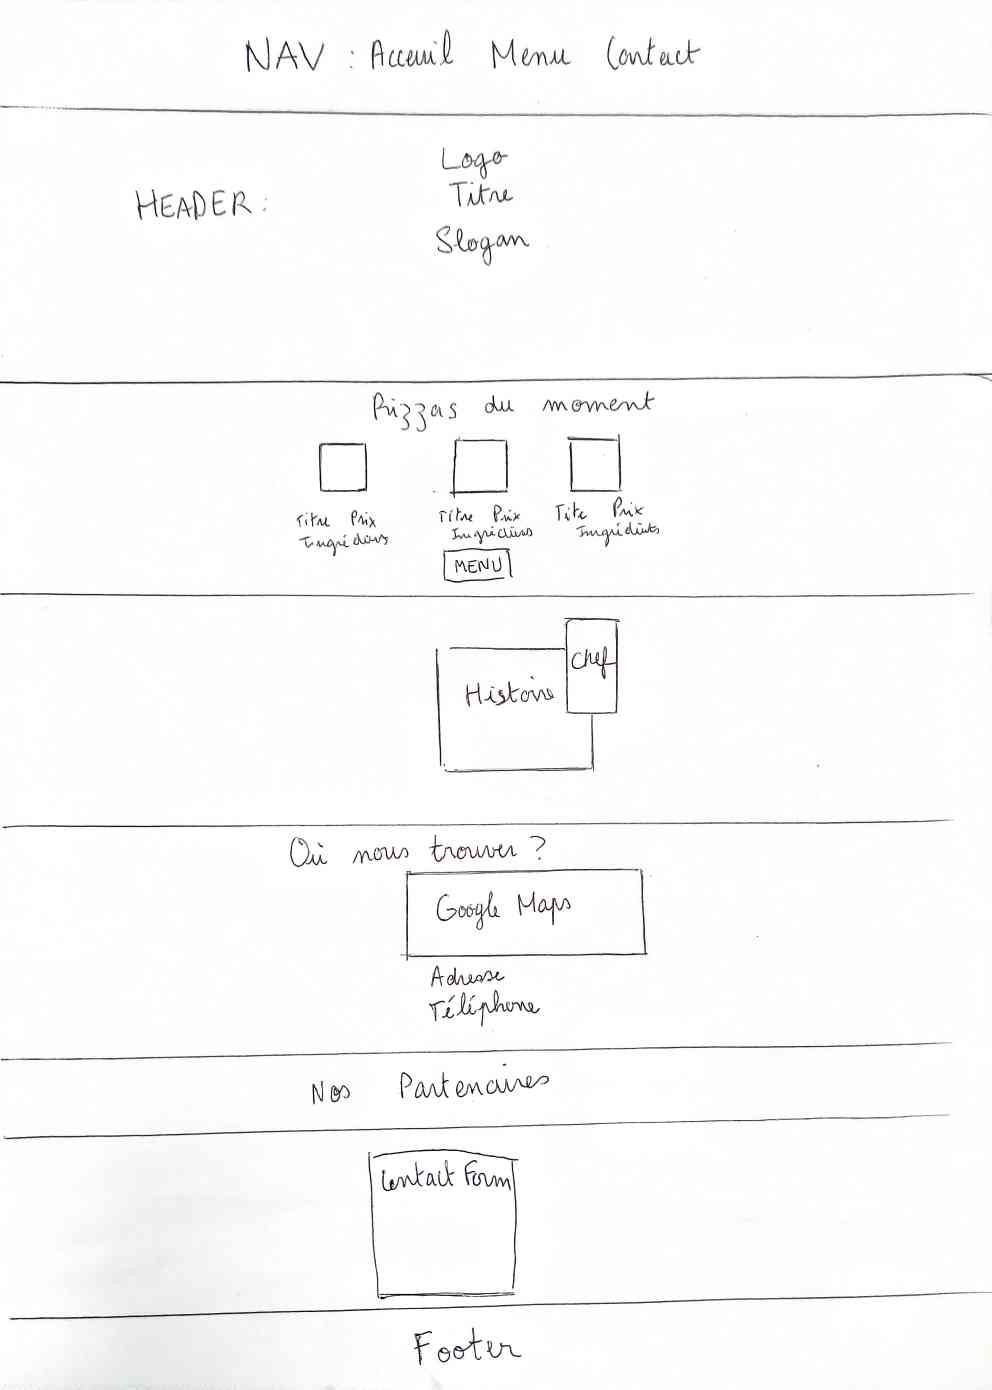 NAV : Acceuil Menu Contact
HEADER :
Logo
Titre
Slogan
Pizzas du moment
Titre Prix
Ingrédients
Titre Prix
Ingrédients
Titre Prix
Ingrédients
MENU
Histoire
Chef
Où nous trouver ?
Google Maps
Adresse
Téléphone
Nos Partenaires
Contact Form
Footer